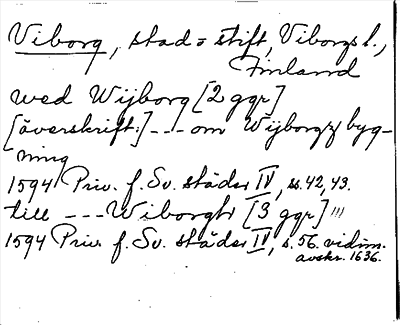 Viborg, stad o stift, Viborgs l.,
Finland
wed Wijborg [2 ggr]
[överskrift:] --- om Wijborgz byg-
ning
1594 Priv. f. Sv. städer IV, ss. 42, 43.
till --- Wiborgh [3 ggr] !!!
1594 Priv. f. Sv. städer IV, s. 56. vidim.
avskr. 1636.